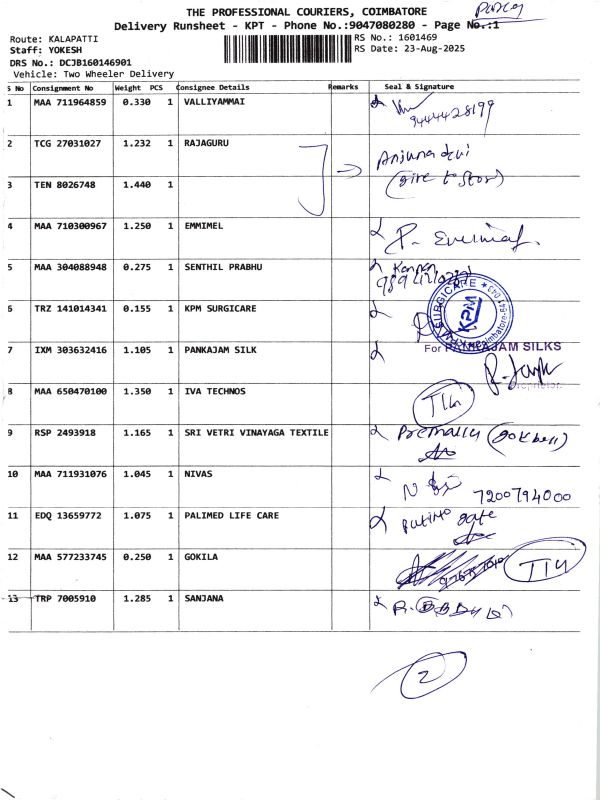 THE PROFESSIONAL COURIERS, COIMBATORE
Delivery Runsheet - KPT - Phone No.:9047080280 - Page No.:1
Route: KALAPATTI
RS No.: 1601469
Staff: YOKESH
RS Date: 23-Aug-2025
DRS No.: DCJB160146901
Vehicle: Two Wheeler Delivery
S No Consignment No Weight PCS Consignee Details Remarks Seal & Signature
1 MAA 711964859 0.330 1 VALLIYAMMAI
9444428199
2 TCG 27031027 1.232 1 RAJAGURU
Anjuna devi
3 TEN 8026748 1.440 1
(give to stor)
4 MAA 710300967 1.250 1 EMMIMEL
5 MAA 304088948 0.275 1 SENTHIL PRABHU
Kannan
6 TRZ 141014341 0.155 1 KPM SURGICARE
KPM
7 IXM 303632416 1.105 1 PANKAJAM SILK
For PANKAJAM SILKS
8 MAA 650470100 1.350 1 IVA TECHNOS
9 RSP 2493918 1.165 1 SRI VETRI VINAYAGA TEXTILE
10 MAA 711931076 1.045 1 NIVAS
7200794000
11 EDQ 13659772 1.075 1 PALIMED LIFE CARE
gate
12 MAA 577233745 0.250 1 GOKILA
13 TRP 7005910 1.285 1 SANJANA
2